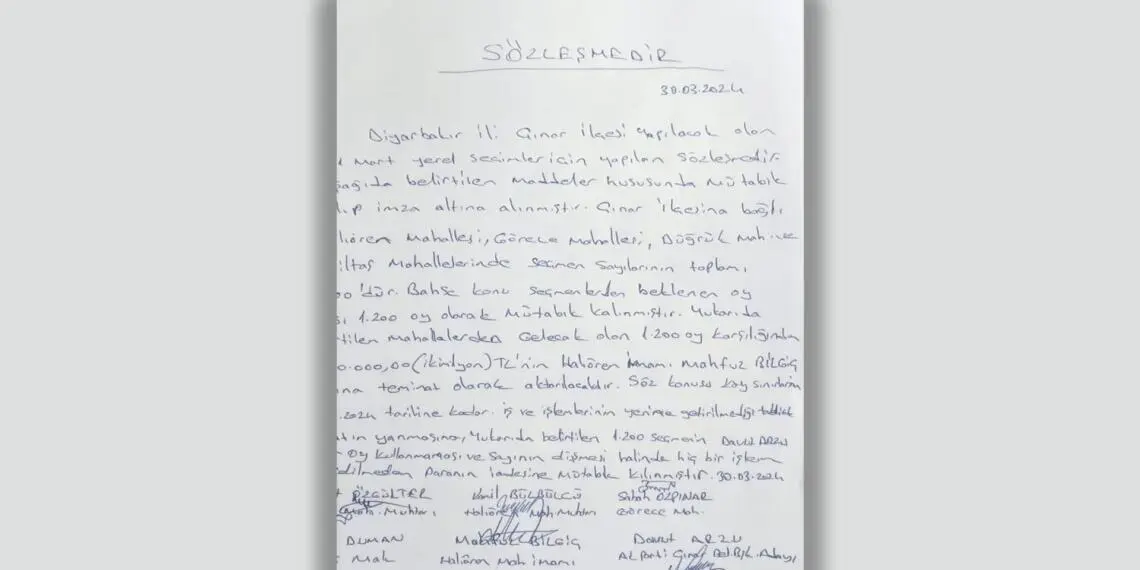 SÖZLEŞMEDİR
30.03.2024
Diyarbakır İli Çınar İlçesi Yapılacak olan
Mart yerel seçimler için yapılan sözleşmedir.
belirtilen maddeler hususunda mütabık
imza altına alınmıştır. Çınar İlçesine bağlı
Mahallesi, Görece Mahallesi, Düğrük Mah. ve
Mahallelerinde seçmen sayılarının toplamı
'dür. Bahse konu seçmenlerden beklenen oy
1.200 oy olarak mütabık kalınmıştır. Yukarıda
mahallelerden gelecek olan 1.200 oy karşılığından
0.000,00 (ikimilyon) TL'nin Halıören imamı Mahfuz BİLGİÇ
teminat olarak aktarılacaktır. Söz konusu köy sınırlarını
.2024 tarihine kadar. iş ve işlemlerinin yerine getirilmediği
yanmasına, Yukarıda belirtilen 1.200 seçmenin Davut ARZU
oy kullanmaması ve sayının düşmesi halinde hiç bir işlem
paranın iadesine mütabık kılınmıştır. 30.03.2024
ÖZGÜLTER Vamil BÜLBÜLCÜ Sabah ÖZPINAR
Muhtarı Halıören Mah Muhtarı Görece Mah.
DUMAN Mahfuz BİLGİÇ Davut ARZU
Mah Halıören Mah imamı AK Parti Çınar Bel. Bşk. Adayı